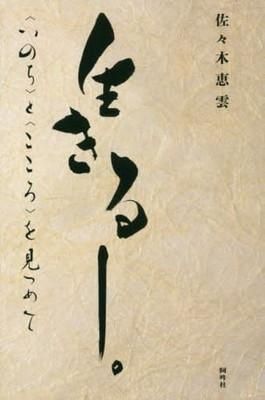 佐々木恵雲
生きる―。
〈いのち〉と〈こころ〉を見つめて
阿吽社